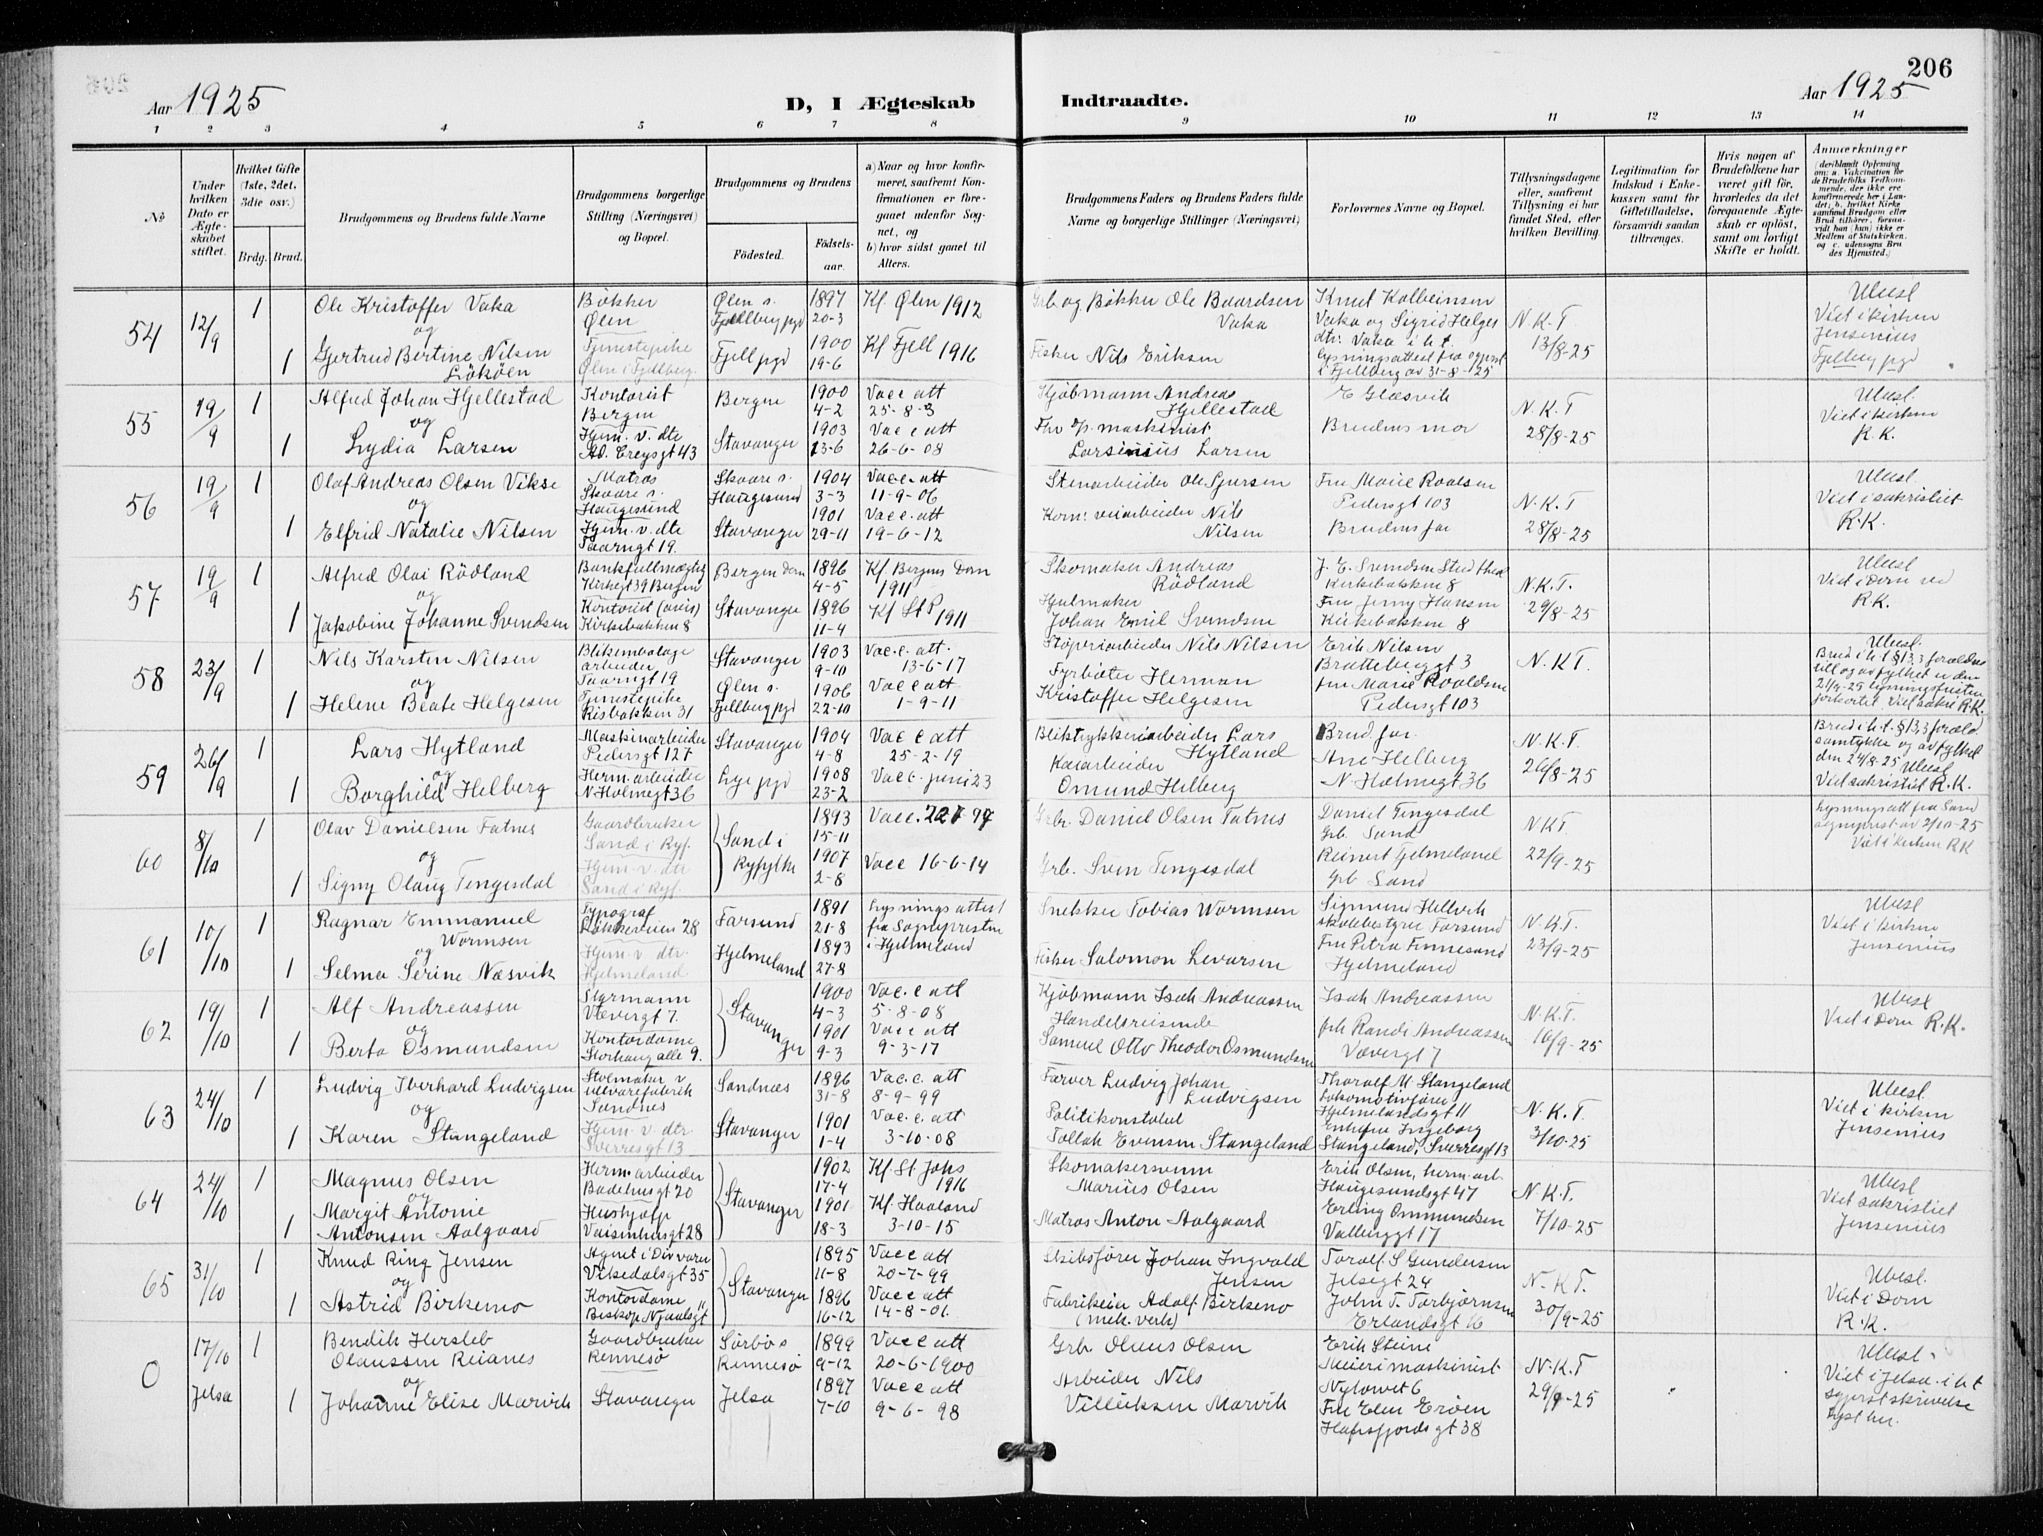 206
Aar 1925
D, I Ægteskab Indtraadte.
Aar 1925
1 2 3 4 5 6 7 8 9 10 11 12 13 14
No
Under hvilken Dato er Ægteskabet stiftet.
Hvilket Gifte (1ste, 2det, 3die osv.)
Brdg. Brud.
Brudgommens og Brudens fulde Navne
Brudgommens borgerlige Stilling (Næringsvei) og Bopæl.
Brudgommens og Brudens
Fødested.
Fødselsaar.
a) Naar og hvor konfirmeret, saafremt Konfirmationen er foregaaet udenfor Sognet, og
b) hvor sidst gaaet til Alters.
Brudgommens Faders og Brudens Faders fulde Navne og borgerlige Stillinger (Næringsvei)
Forlovernes Navne og Bopæl.
Tillysningsdagene eller, saafremt Tillysning ei har fundet Sted, efter hvilken Bevilling.
Legitimation for Indskud i Enkekassen samt for Giftetilladelse, forsaavidt saadan tiltrænges.
Hvis nogen af Brudefolkene har været gift før, hvorledes da det foregaaende Ægteskab er opløst, samt om lovligt Skifte er holdt.
Anmærkninger
(deriblandt Oplysning om: a. Vaccination for de Brudefolks Vedkommende, der ikke ere konfirmerede her i Landet; b. hvilket Kirkesamfund Brudgom eller Brud tilhører, forsaavidt han (hun) ikke er Medlem af Statskirken, og c. udensogns Brudes Hjemsted.)
54 12/9 1 Ole Kristoffer Vaka
og
1 Gjertrud Bertine Nilsen Lököen
Bøkker
Ølen
Tjenestepike
Ølen i Fjellberg
Ølen s. Fjellberg pgd
Fjell pgd
1897 20-3
1900 19-6
Kf Ølen 1912
Kf Fjell 1916
Grb og Bøkker Ole Baardsen Vaka
Fisker Nils Eriksen
Knut Kolbeinsen
Vaka og Sigrid Helges
dtr. Vaka i h.t.
lysningsattest fra sognpr
i Fjellberg av 31-8-125
N.K.T. 13/8-25
Ubesl
Viet i kirken
Jensenius
Fjelberg pgd
55 19/9 1 Alfred Johan Hjellestad
og
1 Lydia Larsen
Kontorist
Bergen
Hjem. v. dtr
Bergen
Stavanger
1900 4-2
1903 13-6
Vacc att 25-8-3
Vacc att 26-6-08
Kjøbmann Andreas Hjellestad
Fhv. maskinist
Larsinius Larsen
E Glæsvik
Brudens mor
N.K.T 28/8-25
Ubesl.
Viet i kirken
R.K.
56 19/9 1 Olaf Andreas Olsen Vikse
og
1 Elfrid Natalie Nilsen
Matros
Skaare s.
Haugesund
Hjem. v. dtr
Taarngt 19.
Skaare s. Haugesund
Stavanger
1904 3-3
1901 29-11
Vacc. att 11-9-06
Vacc. att 19-6-12
Stenarbeider Ole Sjursen
Kom: veiarbeider Nils Nilsen
Fru Marie Roalsen
Pedersgt 103
Brudens far
N.K.T 28/8-25
Ubesl.
Viet i sakristiet
R.K.
57 19/9 1 Alfred Olai Rödland
og
1 Jakobine Johanne Svendsen
Bankfullmægtig
Kirkegt 39 Bergen
Kontorist (avis)
Kirkebakken 8
Bergen Dom
Stavanger
1896 4-5
1896 11-4
Kf Bergens Dom 1911
Kf St P 1911
Skomaker Andreas Rödland
Hjulmaker
Johan Emil Svendsen
J. E. Svendsen
Kirkebakken 8
Fru Jenny Hansen
Kirkebakken 8
N.K.T. 29/8-25
Ubesl
Viet i Dom ved
R.K.
58 23/9 1 Nils Karsten Nilsen
og
1 Helene Beate Helgesen
Blikemballage
arbeider
Taarngt 19
Tjenestepike
Risbakken 31
Stavanger
Ølen s. Fjellberg pgd
1903 9-10
1906 22-10
Vacc. att. 13-6-17
Vacc att 1-9-11
Støperiarbeider Nils Nilsen
Fyrbøter Herman
Kristoffer Helgesen
Erik Nilsen
Brattebergt 3
fru Marie Roaldsen
Pedersgt 103
N.KT.
Ubesl.
Brud i h.t § 13,3 forældres
21/9-25 lysningsfristen
forkortet. Viet sakri R.K.
59 26/9 1 Lars Hytland
og
1 Borghild Helberg
Maskinarbeider
Pedersgt 127
Herm. arbeider
N Holmegt 36
Stavanger
Lye pgd
1904 4-8
1908 23-2
Vacc att 25-2-19
Vacc. juni 23
Bliktrykkeriarbeider Lars Hytland
Kaiarbeider
Omund Helberg
Brud far.
Ane Helberg
N Holmegt 36
N.K.T. 26/8-25
Brud i h.t. § 13,3 foræld.
samtykke og av fylket
den 24/8-25 Ubesl
Viet sakristiet R.K.
60 8/10 1 Olav Danielsen Fatnes
og
1 Signy Olaug Tengesdal
Gaardbruker
Sand i Ryf.
Hjem. v. dtr
Sand i Ryf.
Sand i Ryfylke
1893 15-11
1907 2-8
Vacc 16-6-14
Grbr. Daniel Olsen Fatnes
Grb. Sven Tengesdal
Daniel Tengesdal
Grb. Sand
Reinert Gjelmeland
Grb Sand
N.K.T. 22/9-25
Lysningsatt fra Sand
sogneprest av 2/10-25
Viet i kirken R.K
61 10/10 1 Ragnar Emmanuel Wormsen
og
1 Selma Serine Næsvik
Typograf
Hjem v dtr.
Hjelmeland
Farsund
Hjelmeland
1891 21-8
1893 27-8
Lysningsattest
fra Sognepresten
i Hjelmeland
Snekker Tobias Wormsen
Fisker Salomon Levarsen
Sigmund Hellvik
skolebestyrer Farsund
Fru Petra Finnesand
Hjelmeland
N.K.T. 23/9-25
Ubesl
Viet i kirken
Jensenius
62 19/10 1 Alf Andreassen
og
1 Berta Osmundsen
Styrmann
Vævergt 7.
Kontordame
Storhaug alle 9.
Stavanger
1900 4-3
1901 9-3
Vac. c att 5-8-08
Vacc att 9-3-17
Kjøbmann Isak Andreassen
Handelsreisende
Samuel Otto Theodor Osmundsen
Isak Andreassen
frk Randi Andreassen
Vævergt 7
N.K.T. 16/9-25
Ubesl
Viet i Dom R.K.
63 24/10 1 Ludvig Eberhard Ludvigsen
og
1 Karen Stangeland
Stolmaker v
uldvarefabrik
Sandnes
Hjem v. dtr.
Sverresgt 13
Sandnes
Stavanger
1896 31-8
1901 1-4
Vac. c. att 8-9-99
Vac. c. att 3-10-08
Farver Ludvig Johan Ludvigsen
Politikonstabel
Tollak Evensen Stangeland
Thoralf M. Stangeland
Lokomotivfører
Hjelmelandsgt 11
Enkefru Ingeborg
Stangeland, Sverresgt 13
N.K.T. 3/10-25
Ubesl.
Viet i kirken
Jensenius
64 24/10 1 Magnus Olsen
og
1 Margit Antonie
Antonsen Aalgaard
Herm. arbeider
Badehusgt 20
Hushjelp
Vaisenhusgt 28
Stavanger
1902 17-4
1901 18-3
Kf St Johs 1916
Kf. Haaland 3-10-15
Skomakersvenn
Marius Olsen
Matros Anton Aalgaard
Erik Olsen, herm. arb.
Haugesundsgt 47
Erling Ommundsen
Valberggt 17
N.K.T. 7/10-25
Ubesl
Viet sakristiet
Jensenius
65 31/10 1 Knud Ring Jensen
og
1 Astrid Birkemo
Agent i Div varer
Vikedalsgt 35
Kontordame
Biskop Njaalsgt 11
Stavanger
1895 11-8
1896 16-12
Vacc att 20-7-99
Vacc att 14-8-01.
Skibsfører Johan Ingvald Jensen
Fabrikeier Adolf Birkemo
(mek. verk)
Toralf S Gundersen
Jelsegt 24
John T. Torbjørnsen
Erlandsgt 16
N.K.T. 30/9-25
Ubesl.
Viet i Dom
R.K.
0 17/10 Jelsa 1 Bendik Hersleb
Olaussen Reianes
og
1 Johanne Elise Marvik
Gaardbruker
Rennesø
Stavanger
Sørbø s Rennesø
Jelsa
1899 9-12
1897 7-10
Vacc att 20-6-1900
Vacc att 9-6-98
Grb Olaus Olsen
Arbeider Nils
Villiksen Marvik
Erik Steine
Meierimaskinist
Nylovet 6
Fru Elen Erøen
Hafrsfjordsgt 38
N.K.T 29/9-25
Ubesl.
Viet i Jelsa. i h t
sgprst skrivelse
Lyst her.